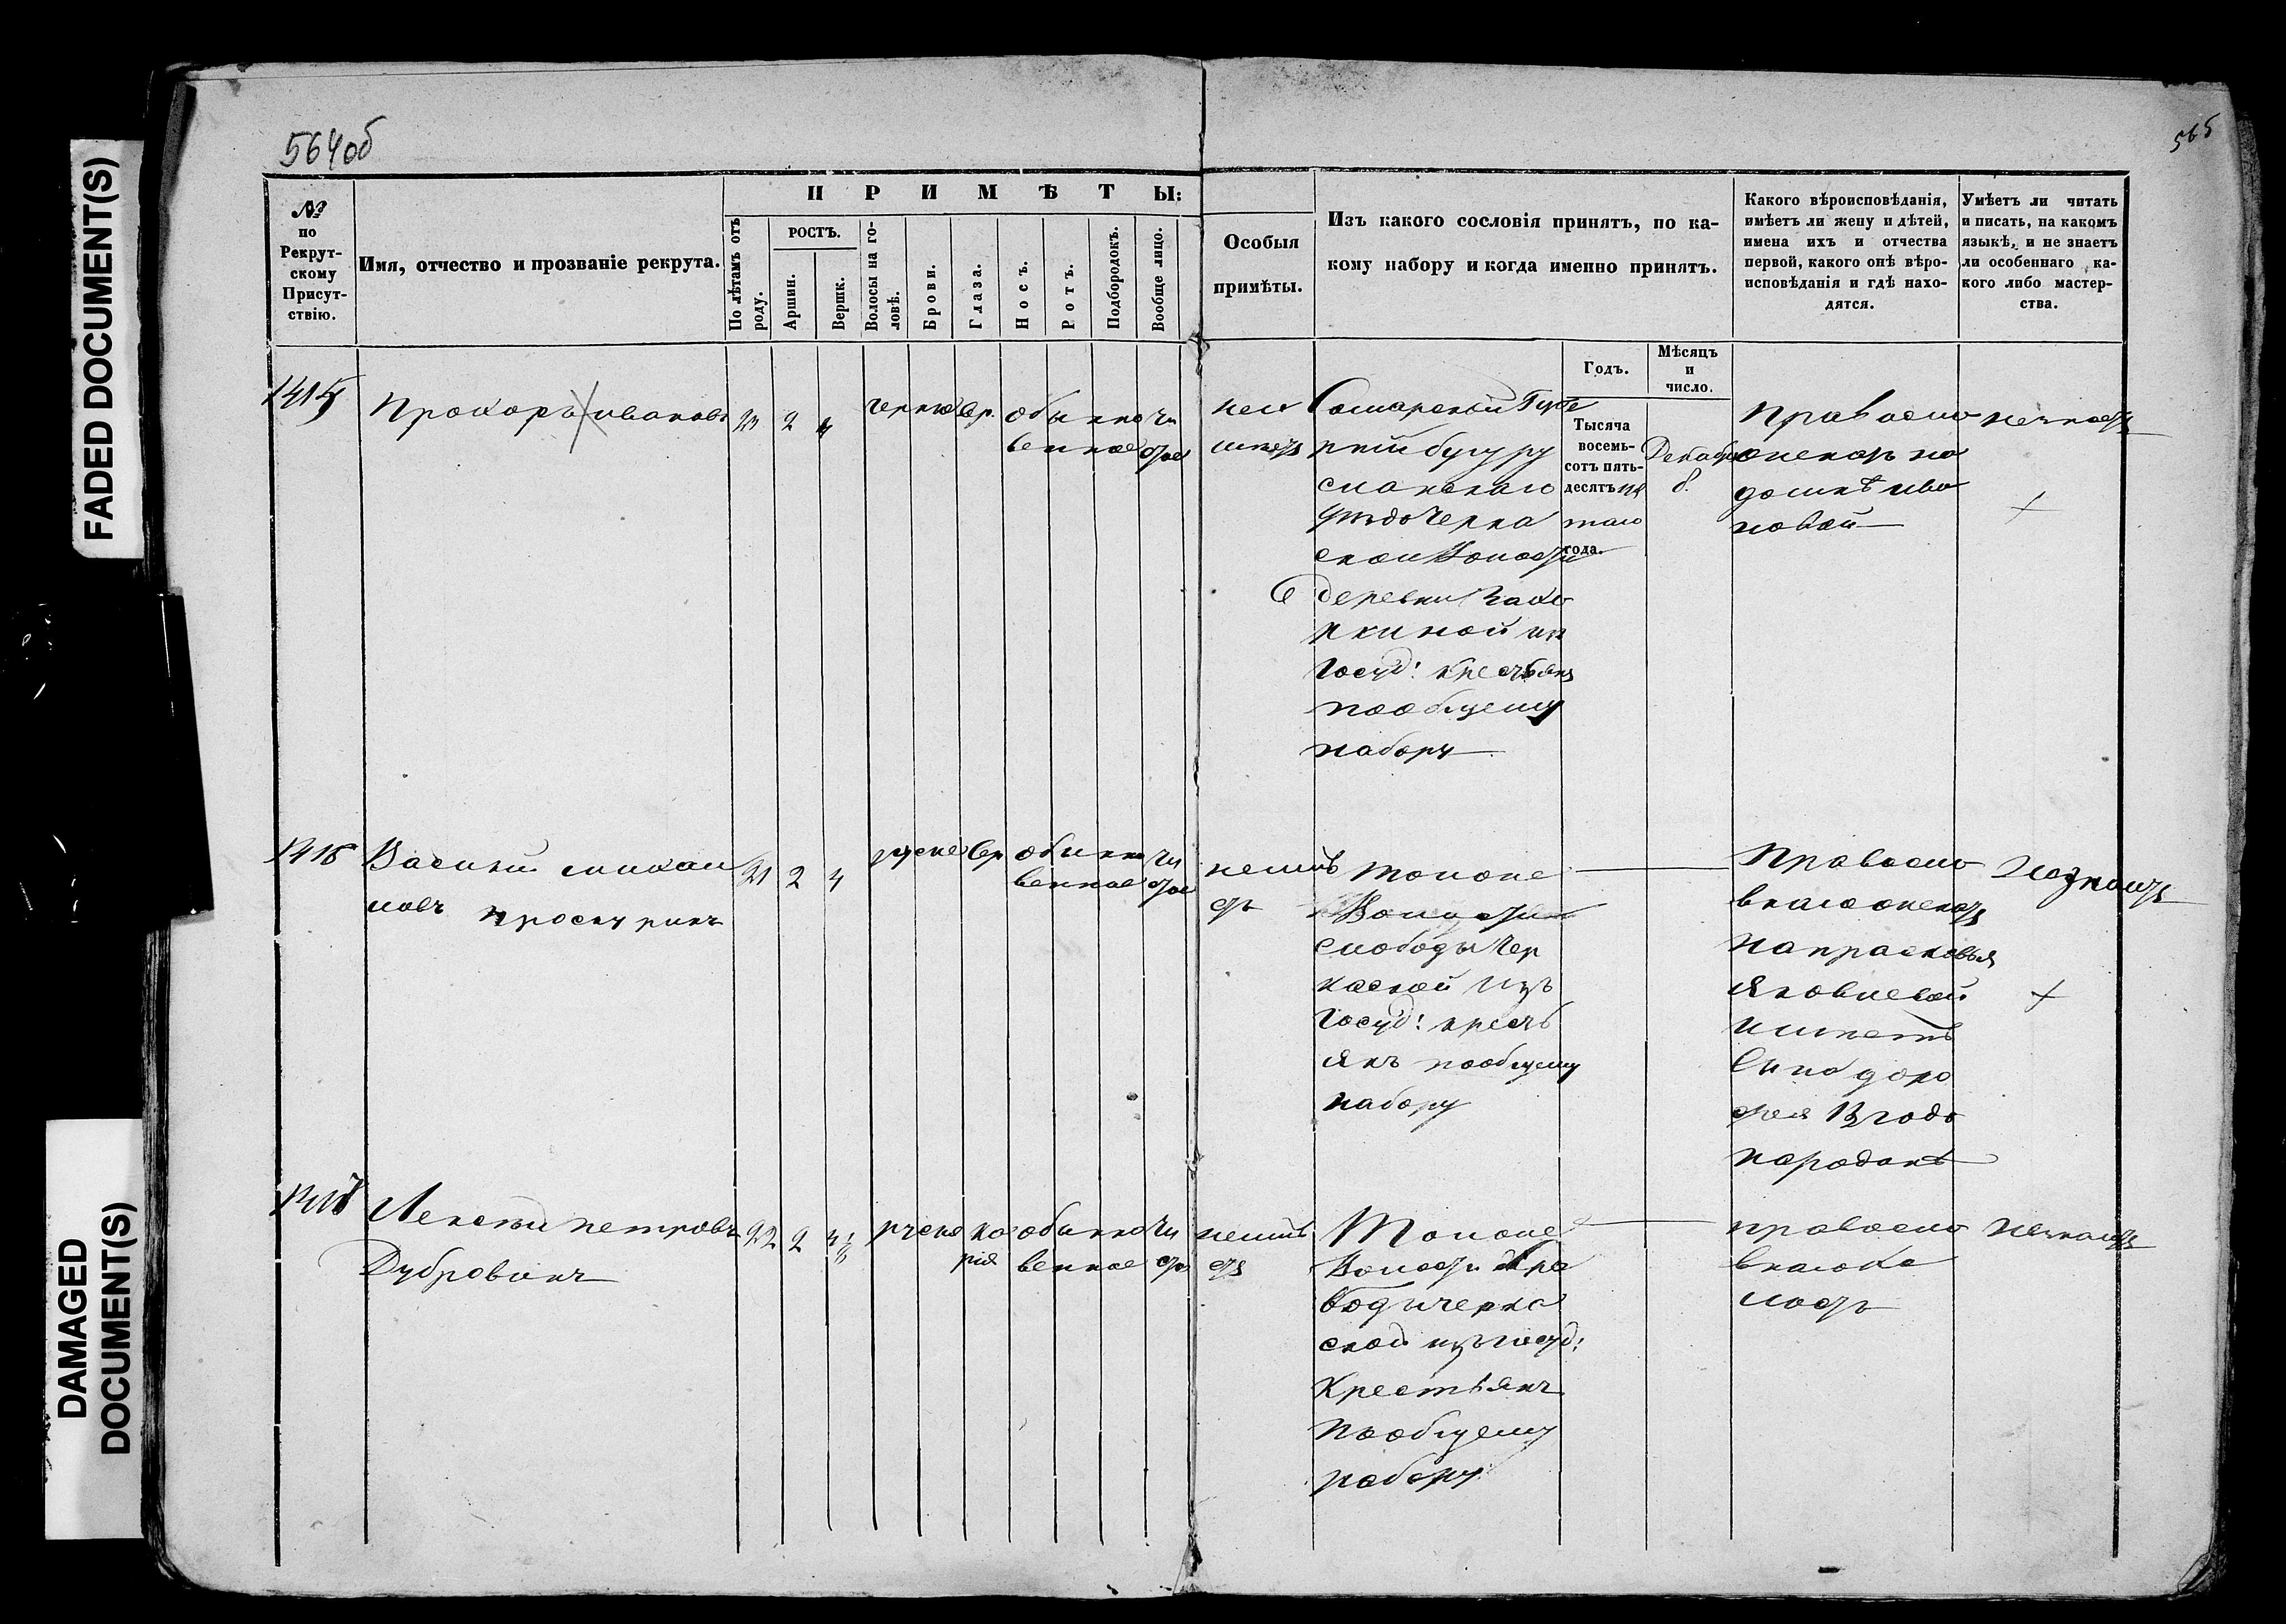 FADED DOCUMENT(S)
DAMAGED
DOCUMENT(S)
564об
565
№
по
Рекрут-
скому
Присут-
ствію.
Имя, отчество и прозваніе рекрута.
ПРИМѢТЫ:
По лѣтамъ отъ
роду.
РОСТЪ.
Аршин.
Вершк.
Волосы на го-
ловѣ.
Брови.
Глаза.
Носъ.
Ротъ.
Подбородокъ.
Вообще лицо.
Особыя
примѣты.
Изъ какого сословія принятъ, по ка-
кому набору и когда именно принятъ.
Годъ.
Мѣсяцъ
и
число.
Какого вѣроисповѣданія,
имѣетъ ли жену и дѣтей,
имена ихъ и отчества
первой, какого онѣ вѣро-
исповѣданія и гдѣ нахо-
дятся.
Умѣетъ ли читать
и писать, на какомъ
языкѣ, и не знаетъ
ли особеннаго ка-
кого либо мастер-
ства.
Прохоръ Ивановъ
2
4
сер.
обыкно
венное
чи
стое
неи
мѣетъ
Самарской Губе
рніи бугуру
сланскаго
уѣзда Черка
ской Волости
деревни
изъ
Госуд: крестьянъ
по общему
набору
Тысяча
восемь-
сотъ пять-
десятъ пя
таго
года.
Декабря
8.
Правосла
новой
незнаетъ
1416
Василий
Проскуринъ
21
2
4
русые
сер
обыкно
венное
чи
стое
неимѣ
етъ
Тойже
Волости
слободы Чер
каской Изъ
Госуд: кресть
янъ по общему
набору
Православ
женатъ
на Прасковья
Яковлевой
имѣетъ
сына доро
фея
незнаетъ
Алексѣй Петровъ
Дубровинъ
22
2
русые
ка
рія
обыкно
венное
чи
стое
неимѣ
етъ
Тойже
Волости
боды черка
ской изъ госуд:
Крестьянъ
по общему
набору
правосла
внаго хо
лостъ
незнаетъ